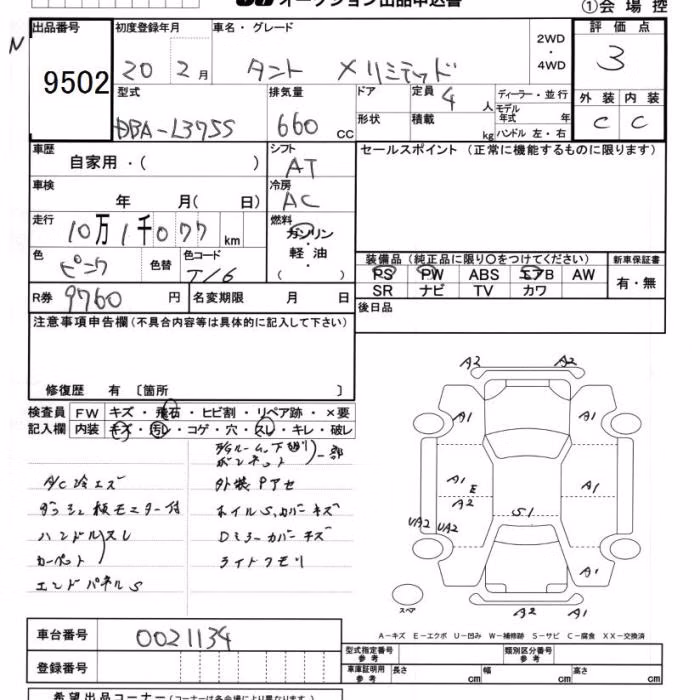 オークション出品申込書
①会場控
出品番号
9502
初度登録年月
20 2月
車名・グレード
タント Xリミテッド
2WD
・
4WD
評価点
3
型式
DBA-L375S
排気量
660 CC
ドア
定員 4 人
ディーラー・並行
形状
積載 kg
モデル年式 年
ハンドル 左・右
外装
内装
C
C
車歴
自家用・( )
シフト
AT
セールスポイント (正常に機能するものに限ります)
車検
年 月( 日)
冷房
AC
走行
10万1千077 km
燃料
ガソリン
軽油
( )
色
ピンク
色替
色コード
T16
装備品 (純正品に限り○をつけてください)
新車保証書
PS PW ABS エアB AW
SR ナビ TV カワ
有・無
R券
9760 円
名変期限 月 日
後日品
注意事項申告欄(不具合内容等は具体的に記入して下さい)
修復歴 有 〔箇所 〕
検査員
記入欄
FW キズ・飛石・ヒビ割・リペア跡・×要
内装 キズ・汚レ・コゲ・穴・スレ・キレ・破レ
ボンネット
一部
A/C冷エズ
外装Pアセ
モニター付
ホイルS、カバーキズ
ハンドルスレ
Dミラーカバーキズ
カーペット
ライトクモリ
エンドパネルS
A2
A2
A1
A1
A1
E
A2
A1
S1
UA2
UA2
A1
A2
A1
スペア
A-キズ E-エクボ U-凹み W-補修跡 S-サビ C-腐食 XX-交換済
車台番号
0021134
登録番号
型式指定番号
参考
類別区分番号
参考
車庫証明用
参考
長さ cm
幅 cm
高さ cm
希望出品コーナー(コーナーは各会場により異なります。)